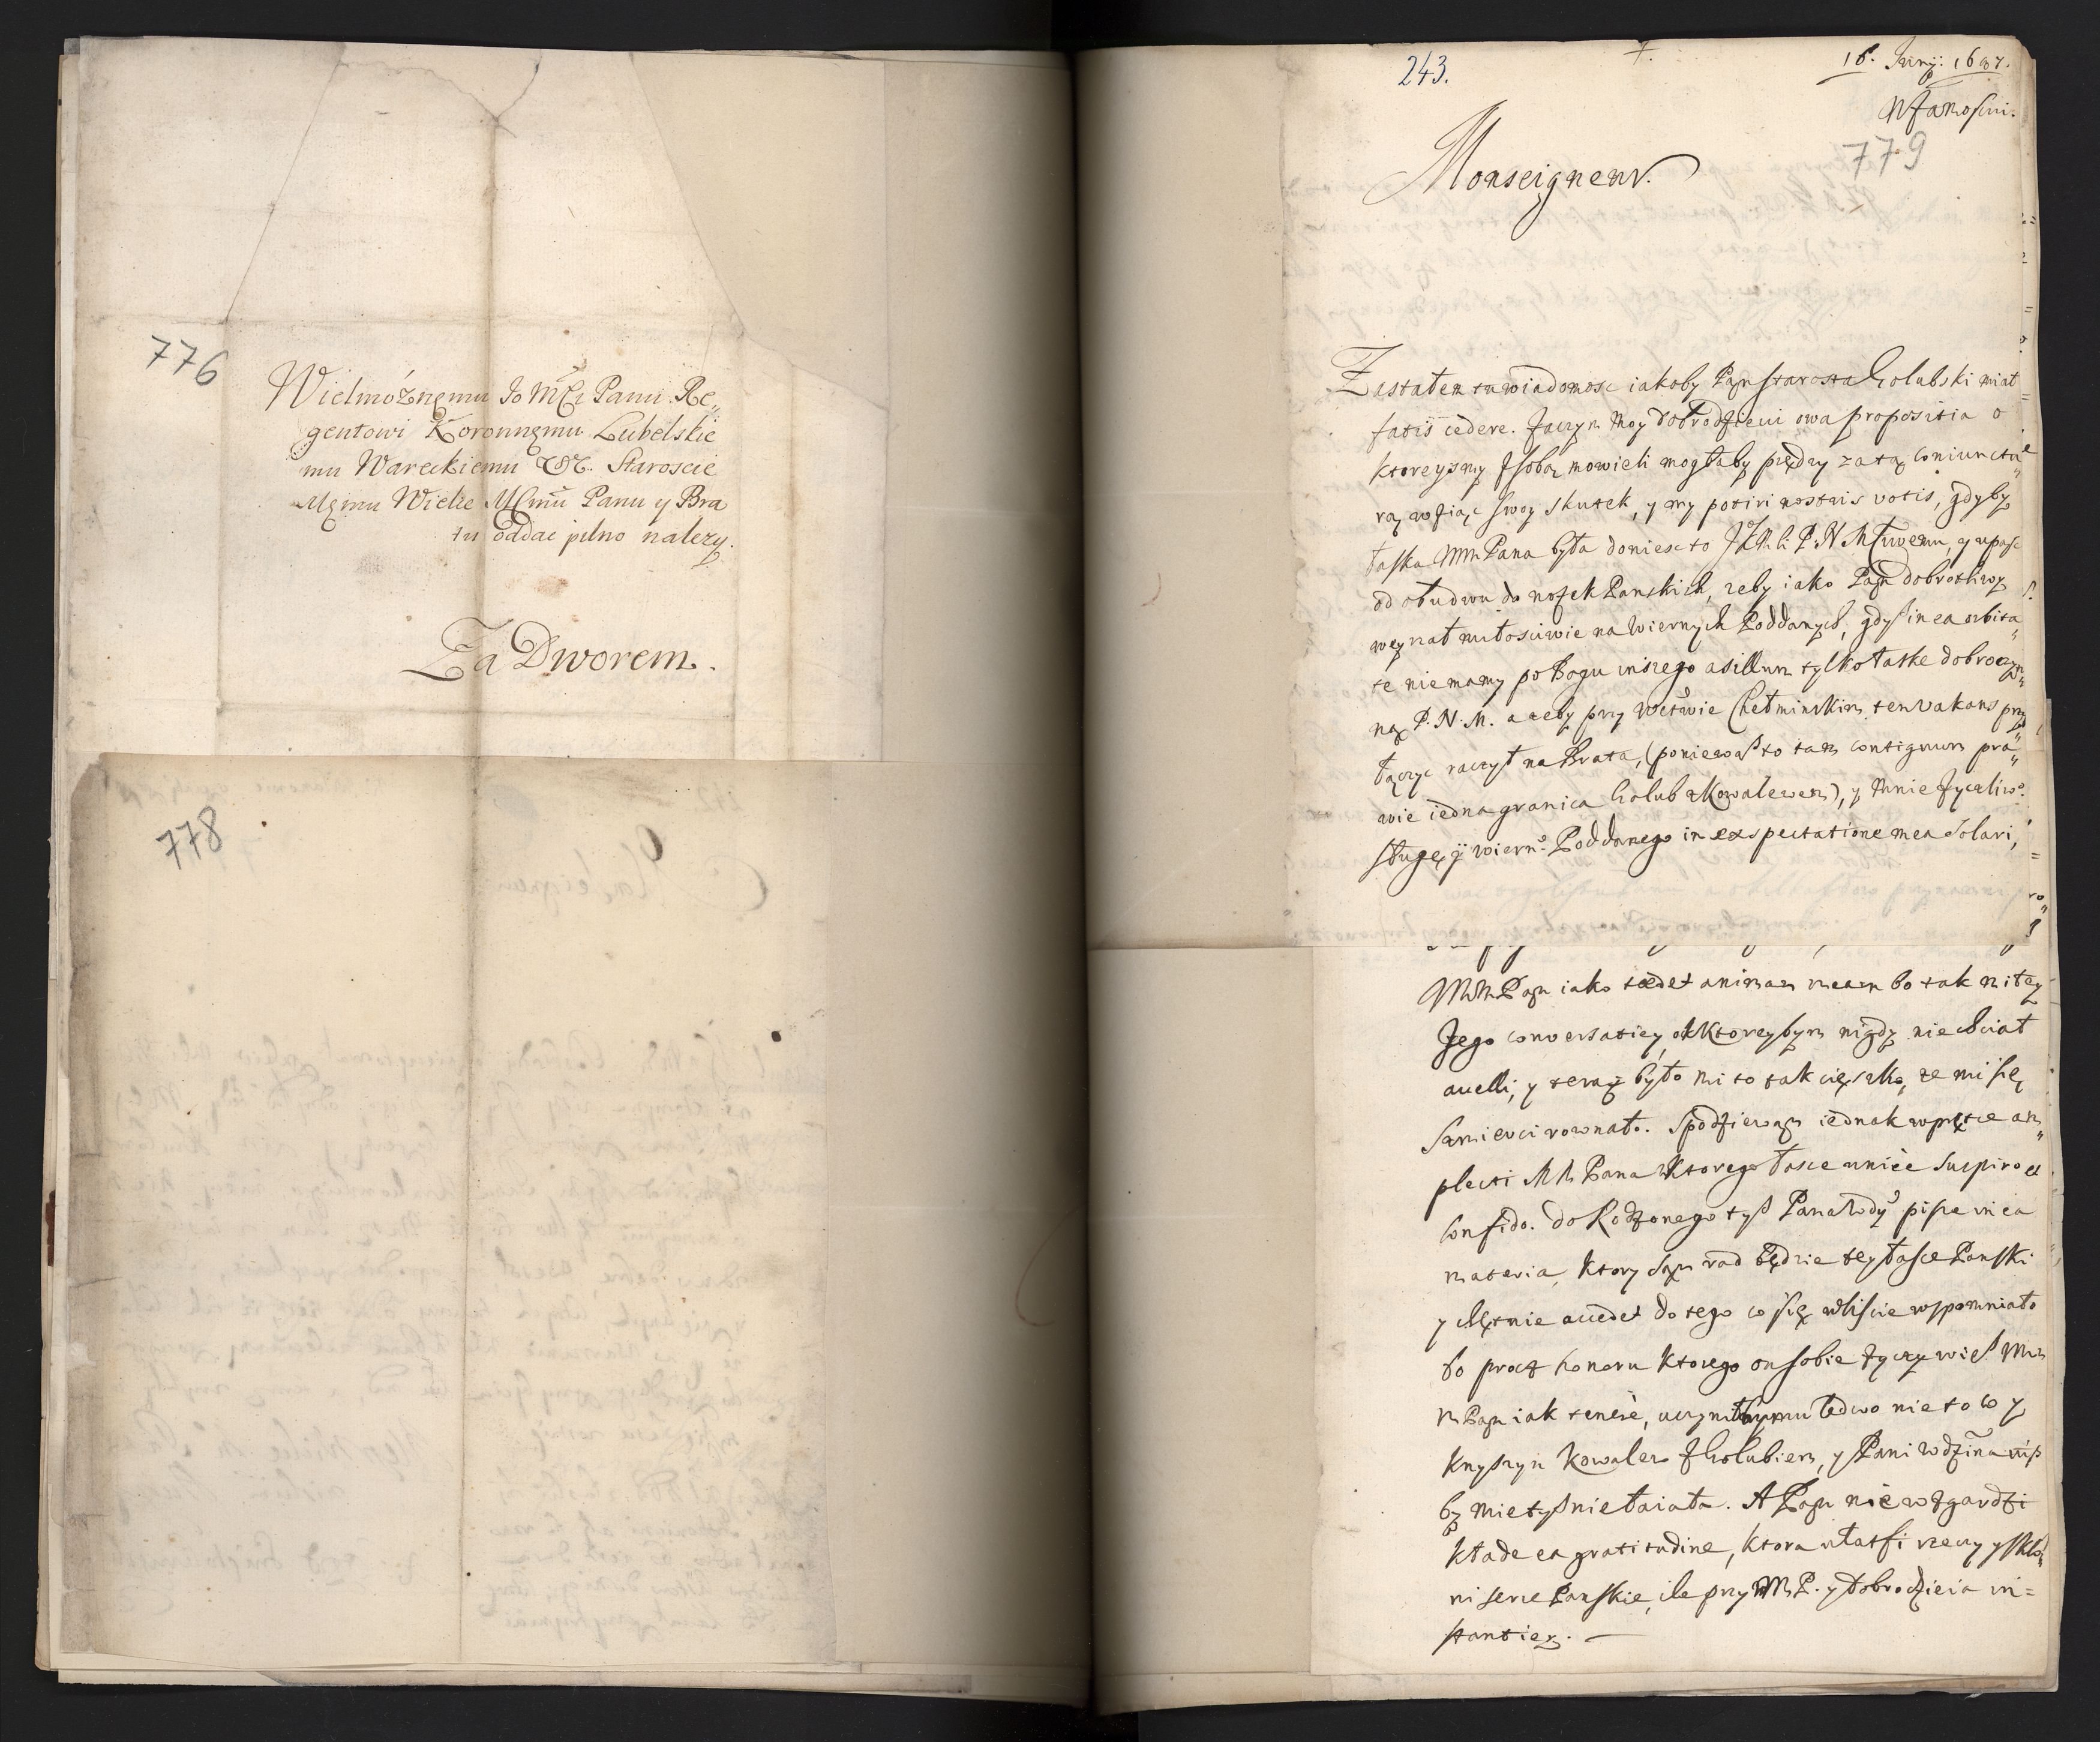 776
Wielmożnęmu Jo Mći Panu Re„
gentowi Koronnęmu Lubelskie
mu Wareckiemu &c. Staroscie
Męmu Wielce Mćmu Panu y Bra
tu oddac pilno nalezy.
Za Dworem.
778
243.
16. Junij: 1687.
w Zamosciu.
779
Monseigneur.
Zastałem tu wiadomosc iakoby Pan starosta Golubski miał
fatis cedere. Zaczym moy dobrodzieiu owa propositia o
ktoreysmy z sobą mowieli mogłaby prędzy za tą coniunctu„
rą wziąc swoy skutek, y my potiri nostris votis, gdyby
łaska MmPana była doniesc to JKMci P.N.Młuwemu, y upasc
od obudwu do nozek Panskich, zeby iako Pan dobrotliwy
weyrzał miłosciwie na wiernych Poddanych, gdysz in ea orbita„
te niemamy po Bogu inszego asillum tylko łaske dobroczyn„
ną P.N.M. a zeby przy Wctwie Chełminskim ten vakans przy„
łączyc raczył na Brata, (poniewasz to tam contiguum pra„
wie iedna granica Golub z Kowalewem), y mnie zyczliwo
sługę y wierno Poddanego in exspectatione mea solari,
MMPan iako tædet animam meam bo tak miłey
Jego conversatiey, od ktoreybym nigdy niechciał
avelli, y teraz było mi to tak cięszko, ze mi się
smierci rownało. Spodziewam iednak wprętce am„
plecti MM Pana w ktorego łasce unice suspiro et
confido. do Rodzonego tysz Pana Wdy pisze in ea
materia, ktory sam rad będzie tey łasce Panski
y chętnie accedet do tego co się w liscie wspomniało
bo procz honoru ktorego on sobie zyczy wiesz Mm
m Pan iak tenere, uczyniłbymu ledwo nie to co y
Knyszyn Kowalew z Golubiem, y Pani Wdzina
by mie tysz nie łaiała. A Pan niewzgardzi
kładę ea gratitudine, ktora ułatfi rzeczy y skło„
ni serce Panskie, ile przy MP. y dobrodzieia in=
stantiey. —